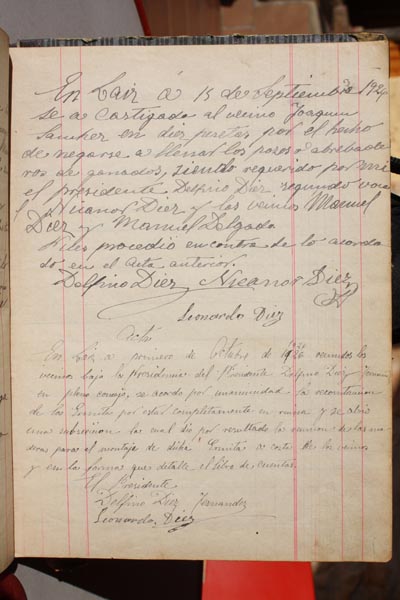 En Laiz á 15 de Septiembre 192
se a Castigado al vecino Joaquin
Sanches en diez pesetas por el hecho
de negarse a llenar los posos o abrebade
ros de ganados, siendo requerido por mi
el presidente Delfino Diez segundo voca
l Nicanor Diez y los vecinos Manuel
Diez y Manuel Delgado
procedio en contra de lo acorda
do en el acta anterior.
Delfino Diez Nicanor Diez
Leonardo Diez
Acta
En Laiz a primero de Octubre de 1926 reunidos los
vecinos bajo la Presidencia del Presidente Delfino Diez
en pleno concejo, se acordo por unanimidad la
de las Ermita por estar completamente en ruina y se abrio
una subscricion la cual dio por resultado la de las ma
deras para el montaje de dicha Ermita a costa de los vecinos
y en la forma que detalla el libro de cuentas.
El Presidente
Delfino Diez Fernandez
Leonardo Diez